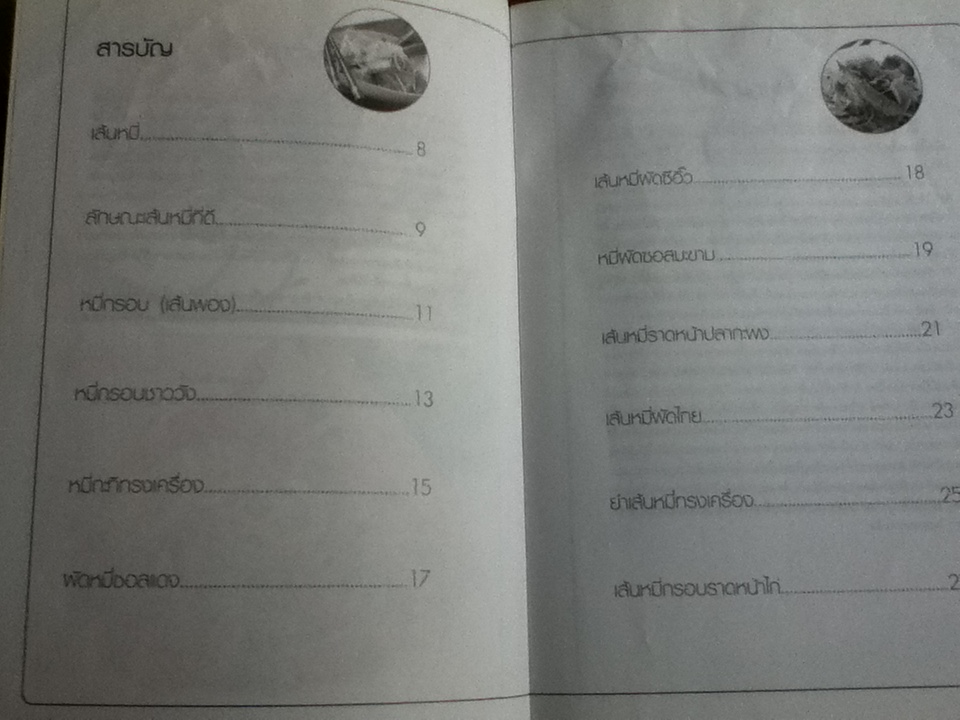 สารบัญ
เส้นหมี่ 8
ลักษณะเส้นหมี่ที่ดี 9
หมี่กรอบ (เส้นพอง) 11
หมี่กรอบชาววัง 13
หมี่กะทิทรงเครื่อง 15
ผัดหมี่ซอสแดง 17
เส้นหมี่ผัดซีอิ๊ว 18
หมี่ผัดซอสมะขาม 19
เส้นหมี่ราดหน้าปลากะพง 21
เส้นหมี่ผัดไทย 23
ยำเส้นหมี่ทรงเครื่อง 25
เส้นหมี่กรอบราดหน้าไก่